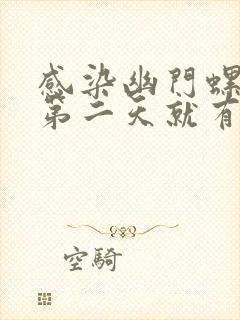 感染幽門螺
第二天就有
空騎